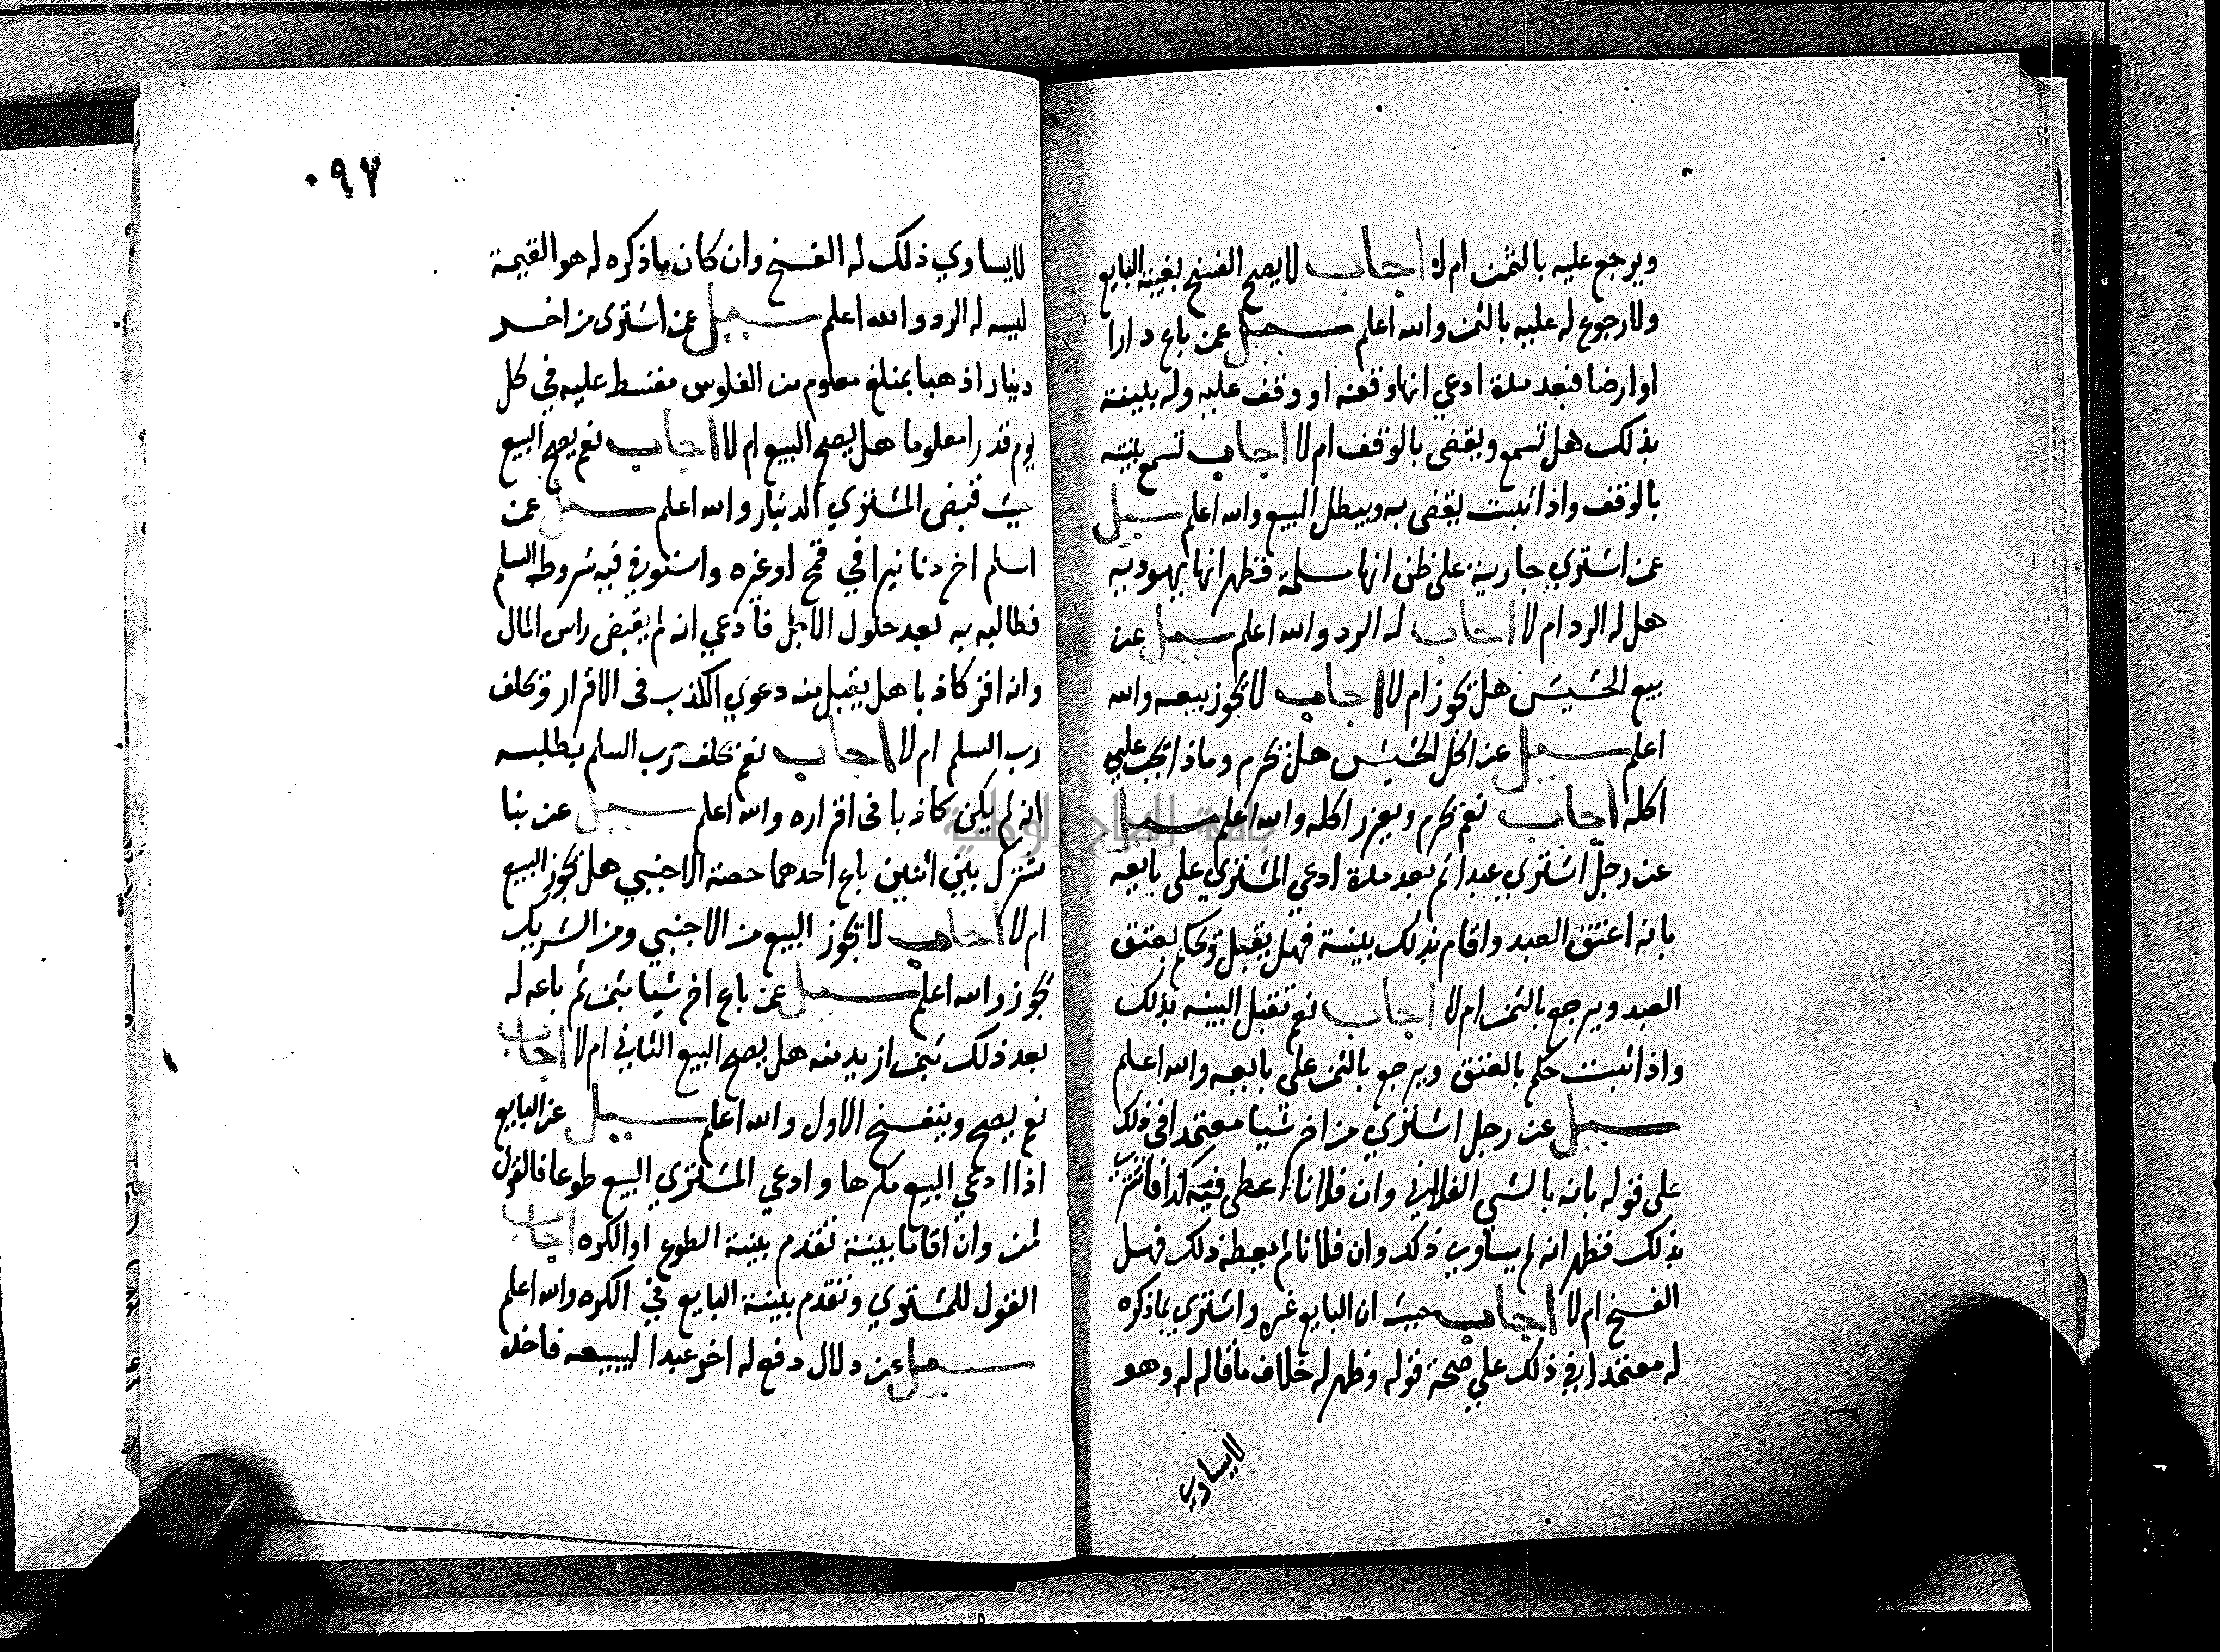 ويرجع عليه بالثمن ام لا اجاب لا يصح الفسخ بغيبة البايع
ولا رجوع له عليه بالثمن والله اعلم سيل عمن باع دارا
او ارضا فبعد مدة ادعي انها وقفه او وقف عليه وله بينة
بذلك هل تسمع ويقضى بالوقف ام لا اجاب تسمع بينته
بالوقف واذا ثبت يقضى به ويبطل البيع والله اعلم سيل
عمن اشتري جارية على ظن انها مسلمة فظهر انها يهودية
هل له الرد ام لا اجاب له الرد والله اعلم سيل عن
بيع الحشيش هل يجوز ام لا اجاب لا يجوز بيعه والله
اعلم سيل عن اكل الحشيش هل يحرم وماذا يجب علي
اكله اجاب نعم يحرم ويعزر اكله والله اعلم سيل
عن رجل اشتري عبدا ثم بعد مدة ادعي المشتري على بايعه
بانه اعتق العبد واقام بذلك بينة فهل يقبل ويحكم بعتق
العبد ويرجع بالثمن ام لا اجاب نعم تقبل البينه بذلك
واذا ثبت حكم بالعتق ويرجع بالثمن على بايعه والله اعلم
سيل عن رجل اشتري من اخر شيا معتمدا في ذلك
على قوله بانه بالشي الفلاني وان فلانا اعطى فيه كذا فاشترى
بذلك فظهر انه لم يساوي ذلك وان فلانا لم يعطه ذلك فهل
الفسخ ام لا اجاب حيث ان البايع غره واشتري بما ذكره
له معتمدا في ذلك علي صحة قوله وظهر له خلاف ما قاله له وهو
لايساوي
٠٩٧
لايساوي ذلك له الفسخ وان كان ماذكره له هو القيمة
ليس له الرد والله اعلم سيل عمن اشترى من اخر
دينارا ذهبا بمبلغ معلوم من الفلوس مقسط عليه في كل
يوم قدرا معلوما هل يصح البيع ام لا اجاب نعم يصح البيع
حيث قبض المشتري الدينار والله اعلم سيل عمن
اسلم اخر دنانير في قمح او غيره واستوفي فيه شروط السلم
فطالبه به بعد حلول الاجل فادعي انه لم يقبض راس المال
وانه اقر كاذبا هل يقبل منه دعوي الكذب في الاقرار ويحلف
رب السلم ام لا اجاب نعم يحلف رب السلم بطلبه
انه لم يكن كاذبا في اقراره والله اعلم سيل عن بنا
مشترك بين اثنين باع احدهما حصته لاجنبي هل يجوز البيع
ام لا اجاب لا يجوز البيع من الاجنبي ومن الشريك
يجوز والله اعلم سيل عمن باع اخر شيا بثمن ثم باعه له
بعد ذلك بثمن ازيد منه هل يصح البيع الثاني ام لا اجاب
نعم يصح وينفسخ الاول والله اعلم سيل عن البايع
اذا ادعي البيع مكرها وادعي المشتري البيع طوعا فالقول
لمن وان اقاما بينة تقدم بينة الطوع او الكره اجاب
القول للمشتري وتقدم بينة البايع في الكره والله اعلم
سيل عن دلال دفع له اخر عبدا ليبيعه فاخذه